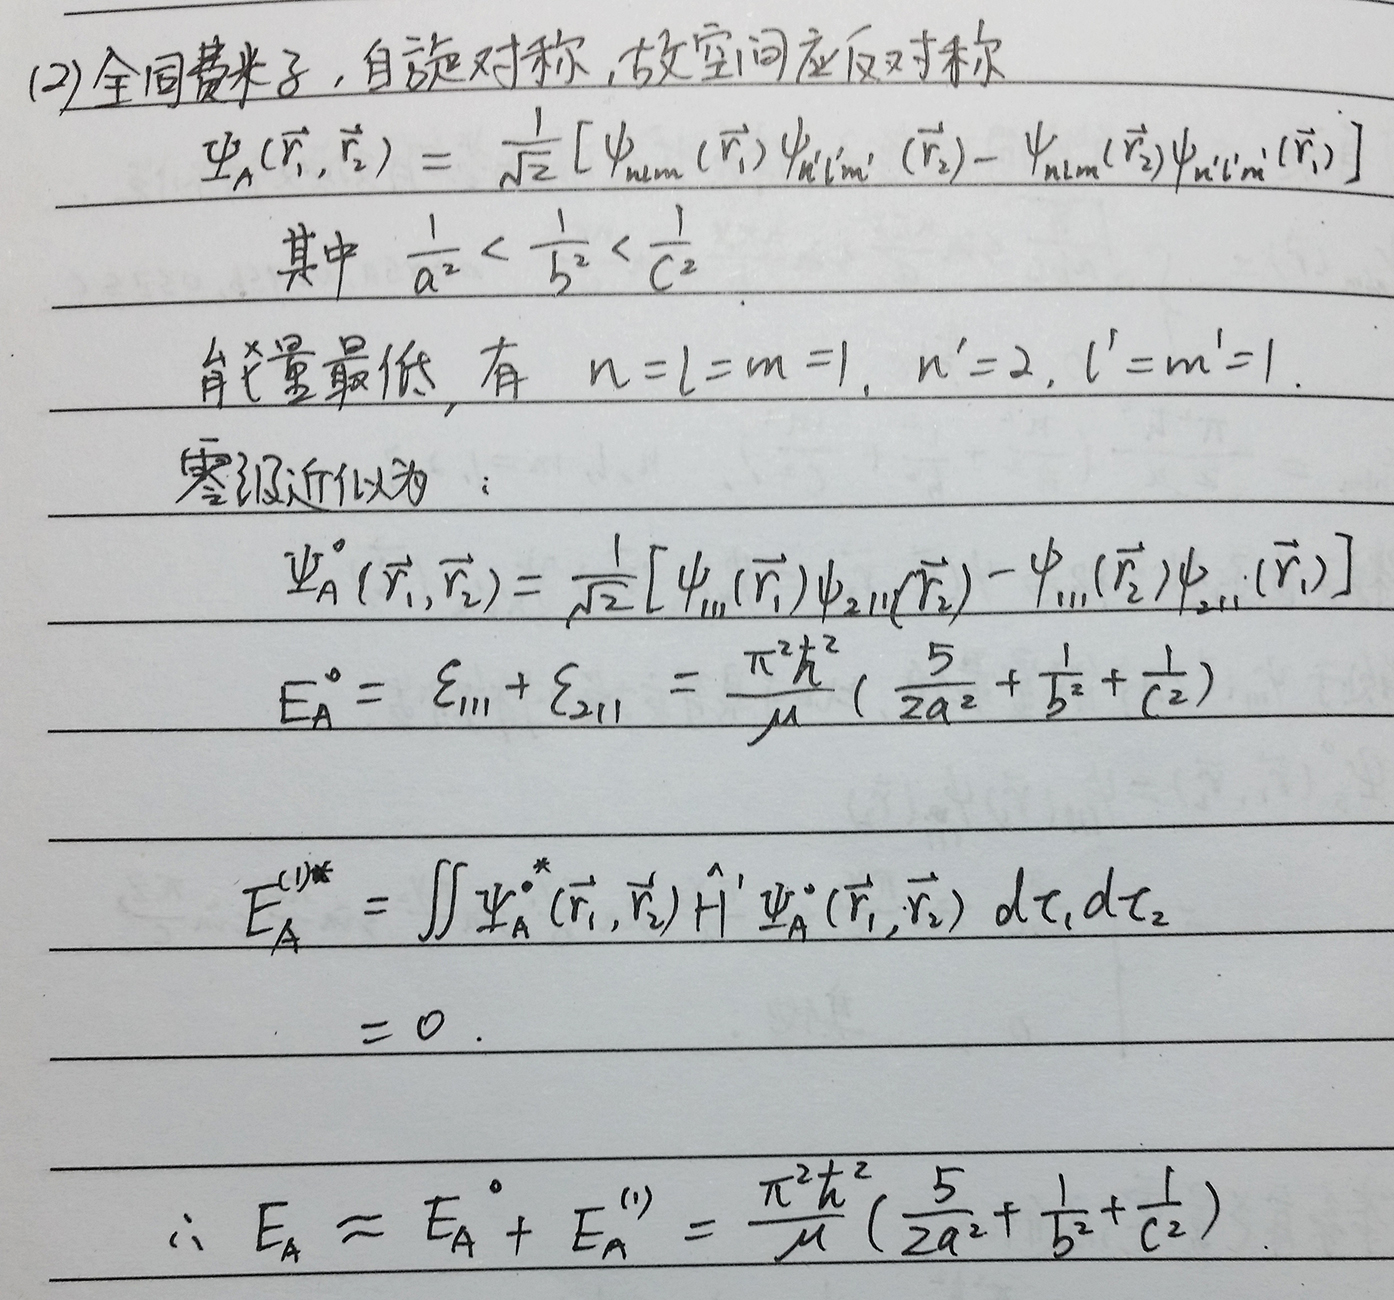 (2) 全同费米子，自旋对称，故空间应反对称
Ψ_A(r⃗₁, r⃗₂) = 1/√2 [ψ_nlm(r⃗₁)ψ_n'l'm'(r⃗₂) - ψ_nlm(r⃗₂)ψ_n'l'm'(r⃗₁)]
其中 1/a² < 1/b² < 1/c²
能量最低，有 n=l=m=1, n'=2, l'=m'=1.
零级近似为：
Ψ_A⁰(r⃗₁, r⃗₂) = 1/√2 [ψ₁₁₁(r⃗₁)ψ₂₁₁(r⃗₂) - ψ₁₁₁(r⃗₂)ψ₂₁₁(r⃗₁)]
E_A⁰ = ε₁₁₁ + ε₂₁₁ = π²ħ²/μ (5/2a² + 1/b² + 1/c²)
E_A⁽¹⁾* = ∬ Ψ_A⁰*(r⃗₁, r⃗₂) Ĥ' Ψ_A⁰(r⃗₁, r⃗₂) dτ₁dτ₂
= 0.
∴ E_A ≈ E_A⁰ + E_A⁽¹⁾ = π²ħ²/μ (5/2a² + 1/b² + 1/c²).